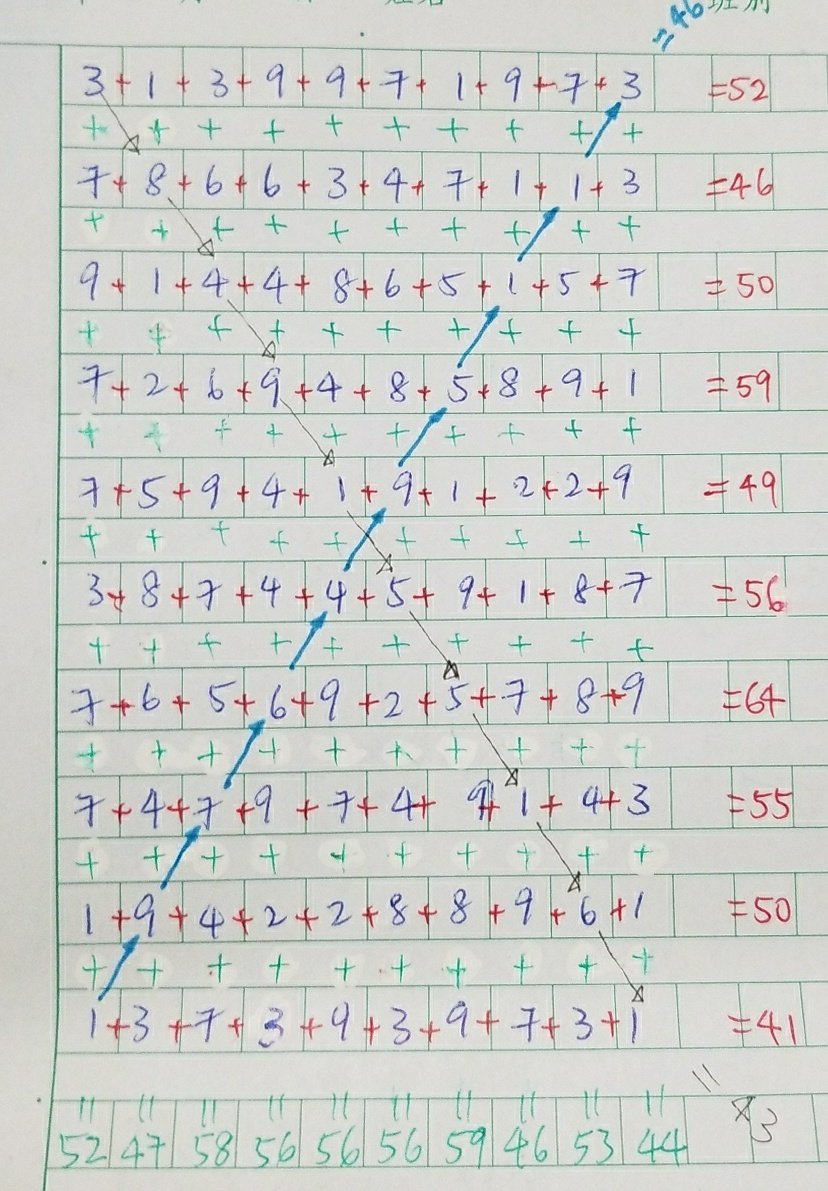 =46 班别
3+1+3+9+9+7+1+9+7+3 =52
+ + + + + + + + + +
7+8+6+6+3+4+7+1+1+3 =46
+ + + + + + + + + +
9+1+4+4+8+6+5+1+5+7 =50
+ + + + + + + + + +
7+2+6+9+4+8+5+8+9+1 =59
+ + + + + + + + + +
7+5+9+4+1+9+1+2+2+9 =49
+ + + + + + + + + +
3+8+7+4+4+5+9+1+8+7 =56
+ + + + + + + + + +
7+6+5+6+9+2+5+7+8+9 =64
+ + + + + + + + + +
7+4+7+9+7+4+9+1+4+3 =55
+ + + + + + + + + +
1+9+4+2+2+8+8+9+6+1 =50
+ + + + + + + + + +
1+3+7+3+9+3+9+7+3+1 =41
= = = = = = = = = = =
52 47 58 56 56 56 59 46 53 44